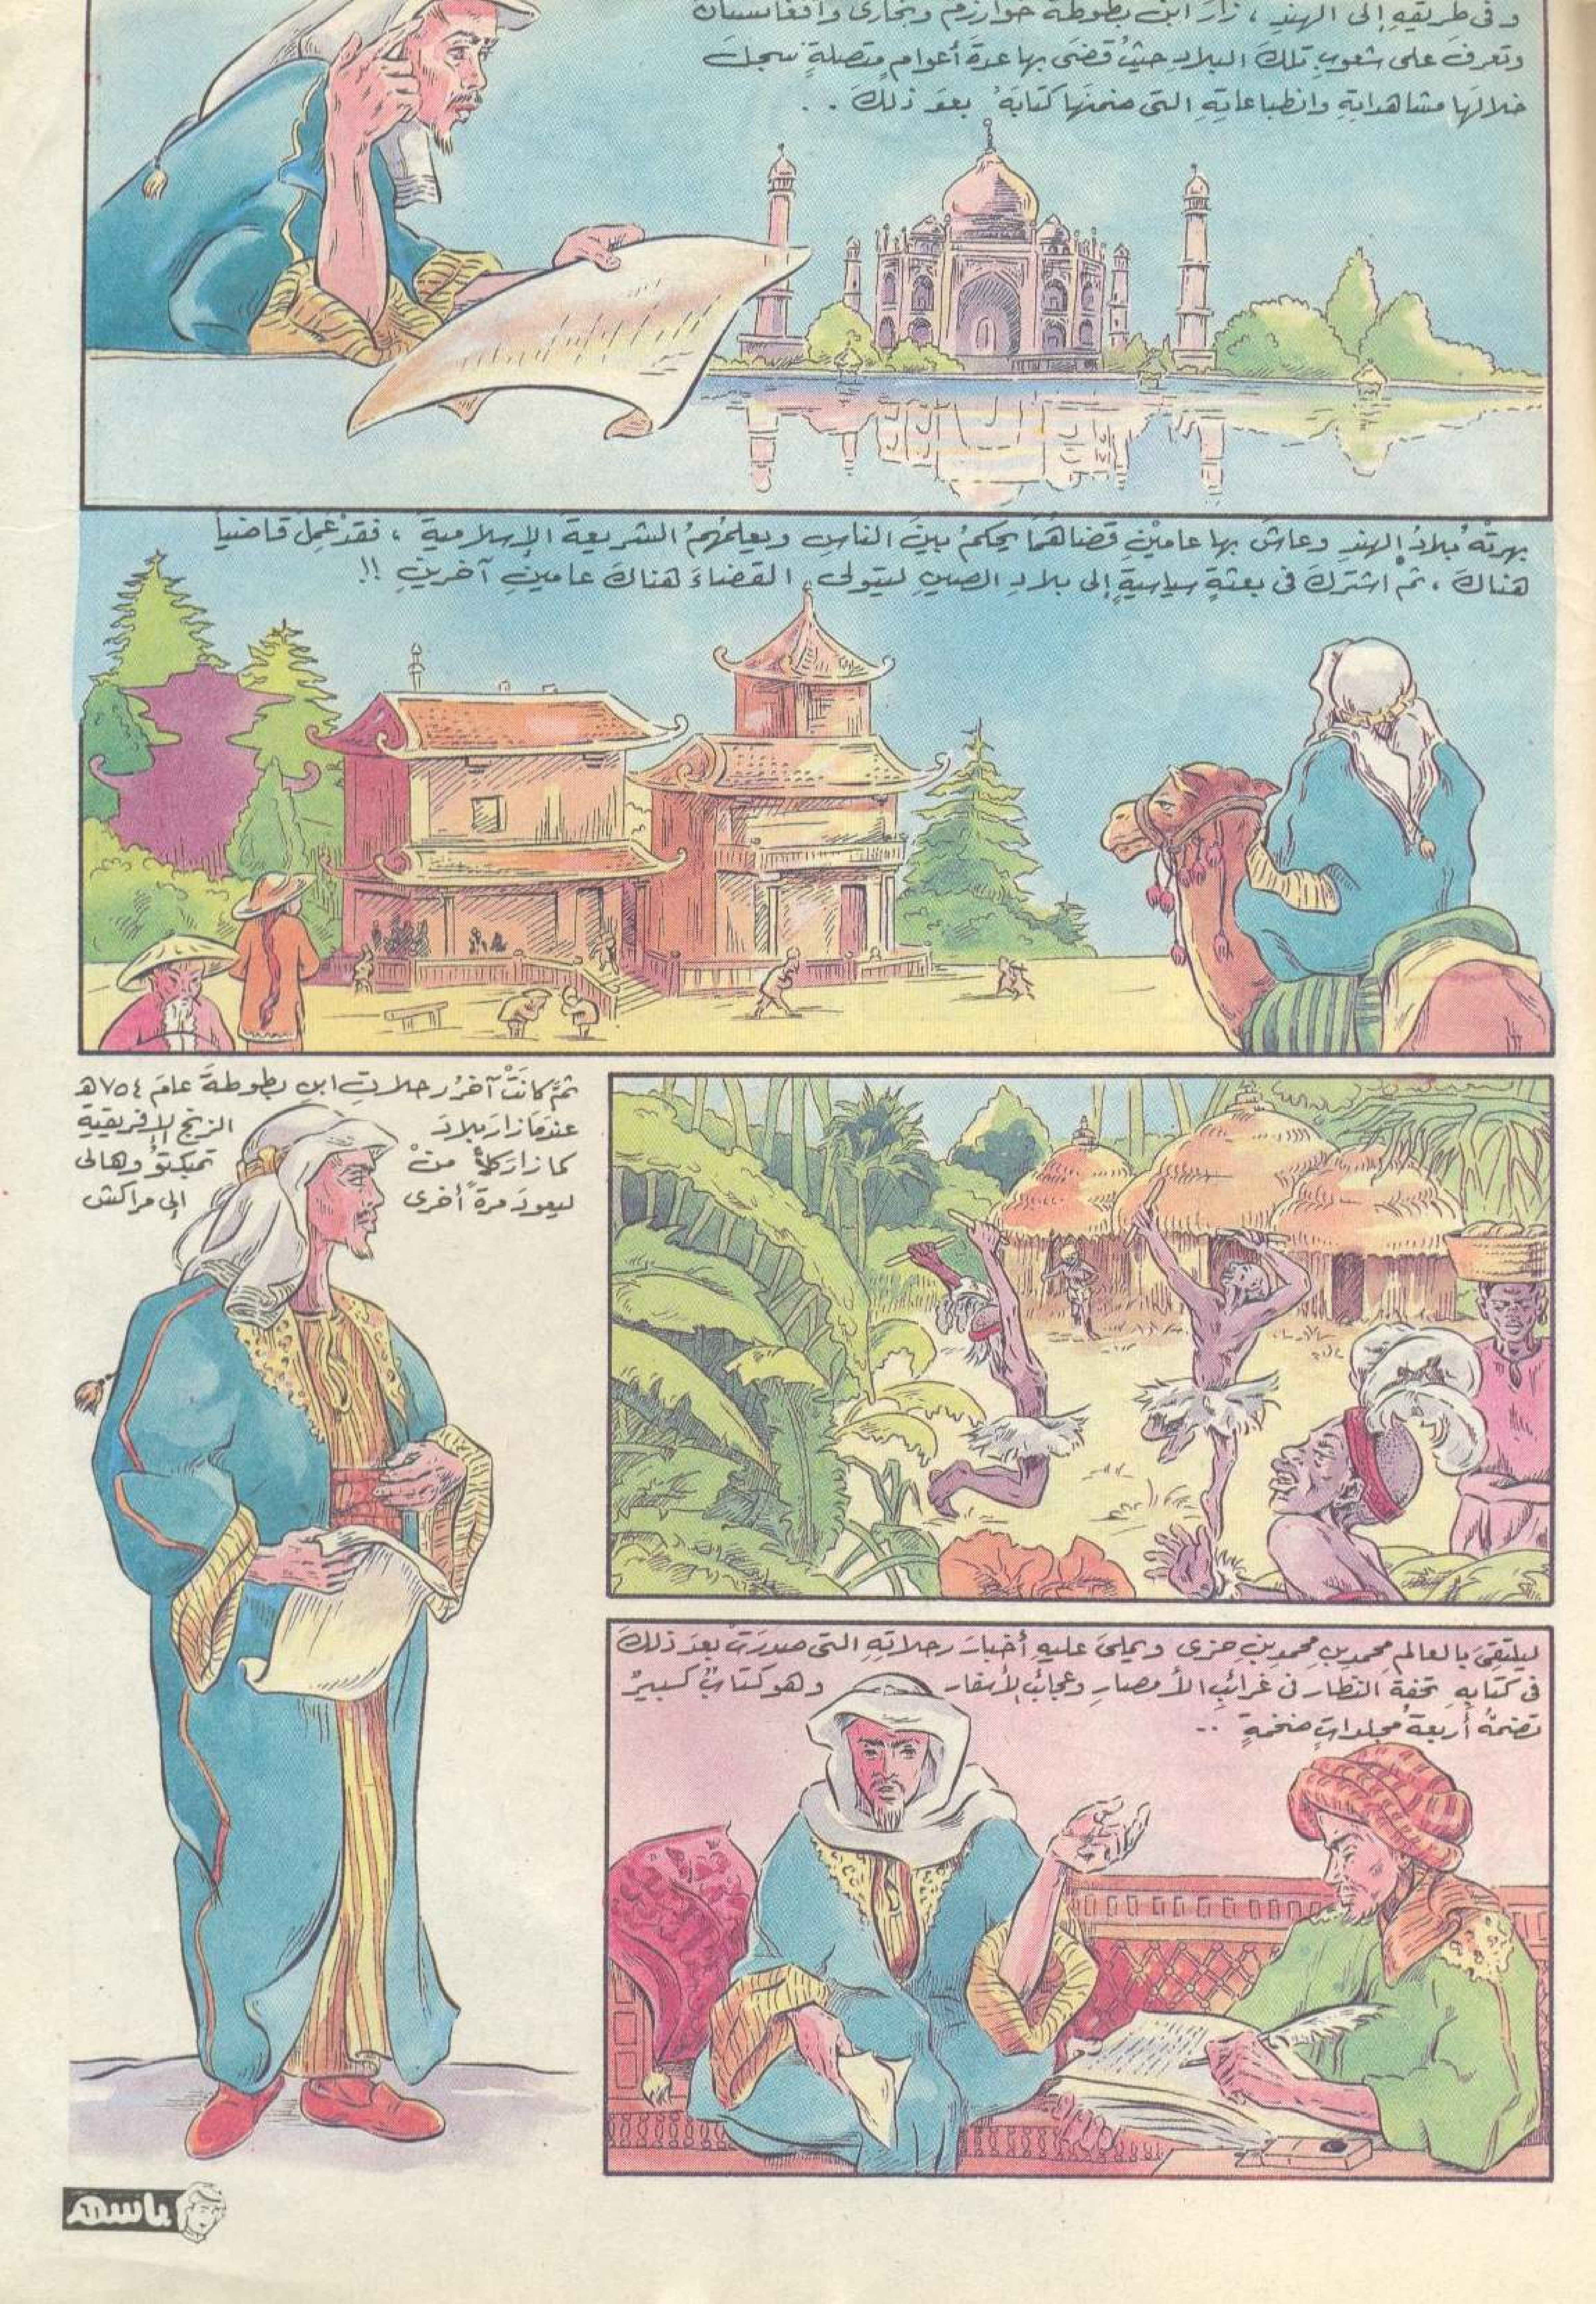 وفى طريقهِ إلى الهندِ ، زارَ ابن بطوطة خوارزم وبخارى وأفغانستان
وتعرفَ على شعوبِ تلكَ البلادِ حيثُ قضَى بها عدةَ أعوامٍ متصلةٍ سجلَ
خلالَها مشاهداتِهِ وانطباعاتِهِ التى ضمنَها كتابَهُ بعدَ ذلكَ . .
بهرتْهُ بلادُ الهندِ وعاشَ بها عامينِ قضاهُما يحكمُ بينَ الناسِ ويعلمُهُمُ الشريعةَ الإسلاميةَ ، فقدْ عَمِلَ قاضياً
هناكَ ، ثمَّ اشتركَ فى بعثةٍ سياسيةٍ إلى بلادِ الصينِ ليتولى القضاءَ هناكَ عامينِ آخرينِ !!
ثمَّ كانتْ آخرُ رحلاتِ ابنِ بطوطةَ عامَ ٧٥٤هـ
عندمَا زارَ بلادَ الزنجِ الإفريقيةِ
كما زارَ كلاً منْ تمبكتوُ وهالى
ليعودَ مرةً أخرى إلى مراكش
ليلتقىَ بالعالمِ محمدِ بنِ محمدِ بنِ جزى ويملىَ عليهِ أخبارَ رحلاتِهِ التى صدرَتْ بعدَ ذلكَ
فى كتابِهِ تحفة النظار فى غرائبِ الأمصارِ وعجائبِ الأسفار وهو كتابٌ كبيرٌ
تضمُّهُ أربعةُ مجلداتٍ ضخمةٍ ..
باسم